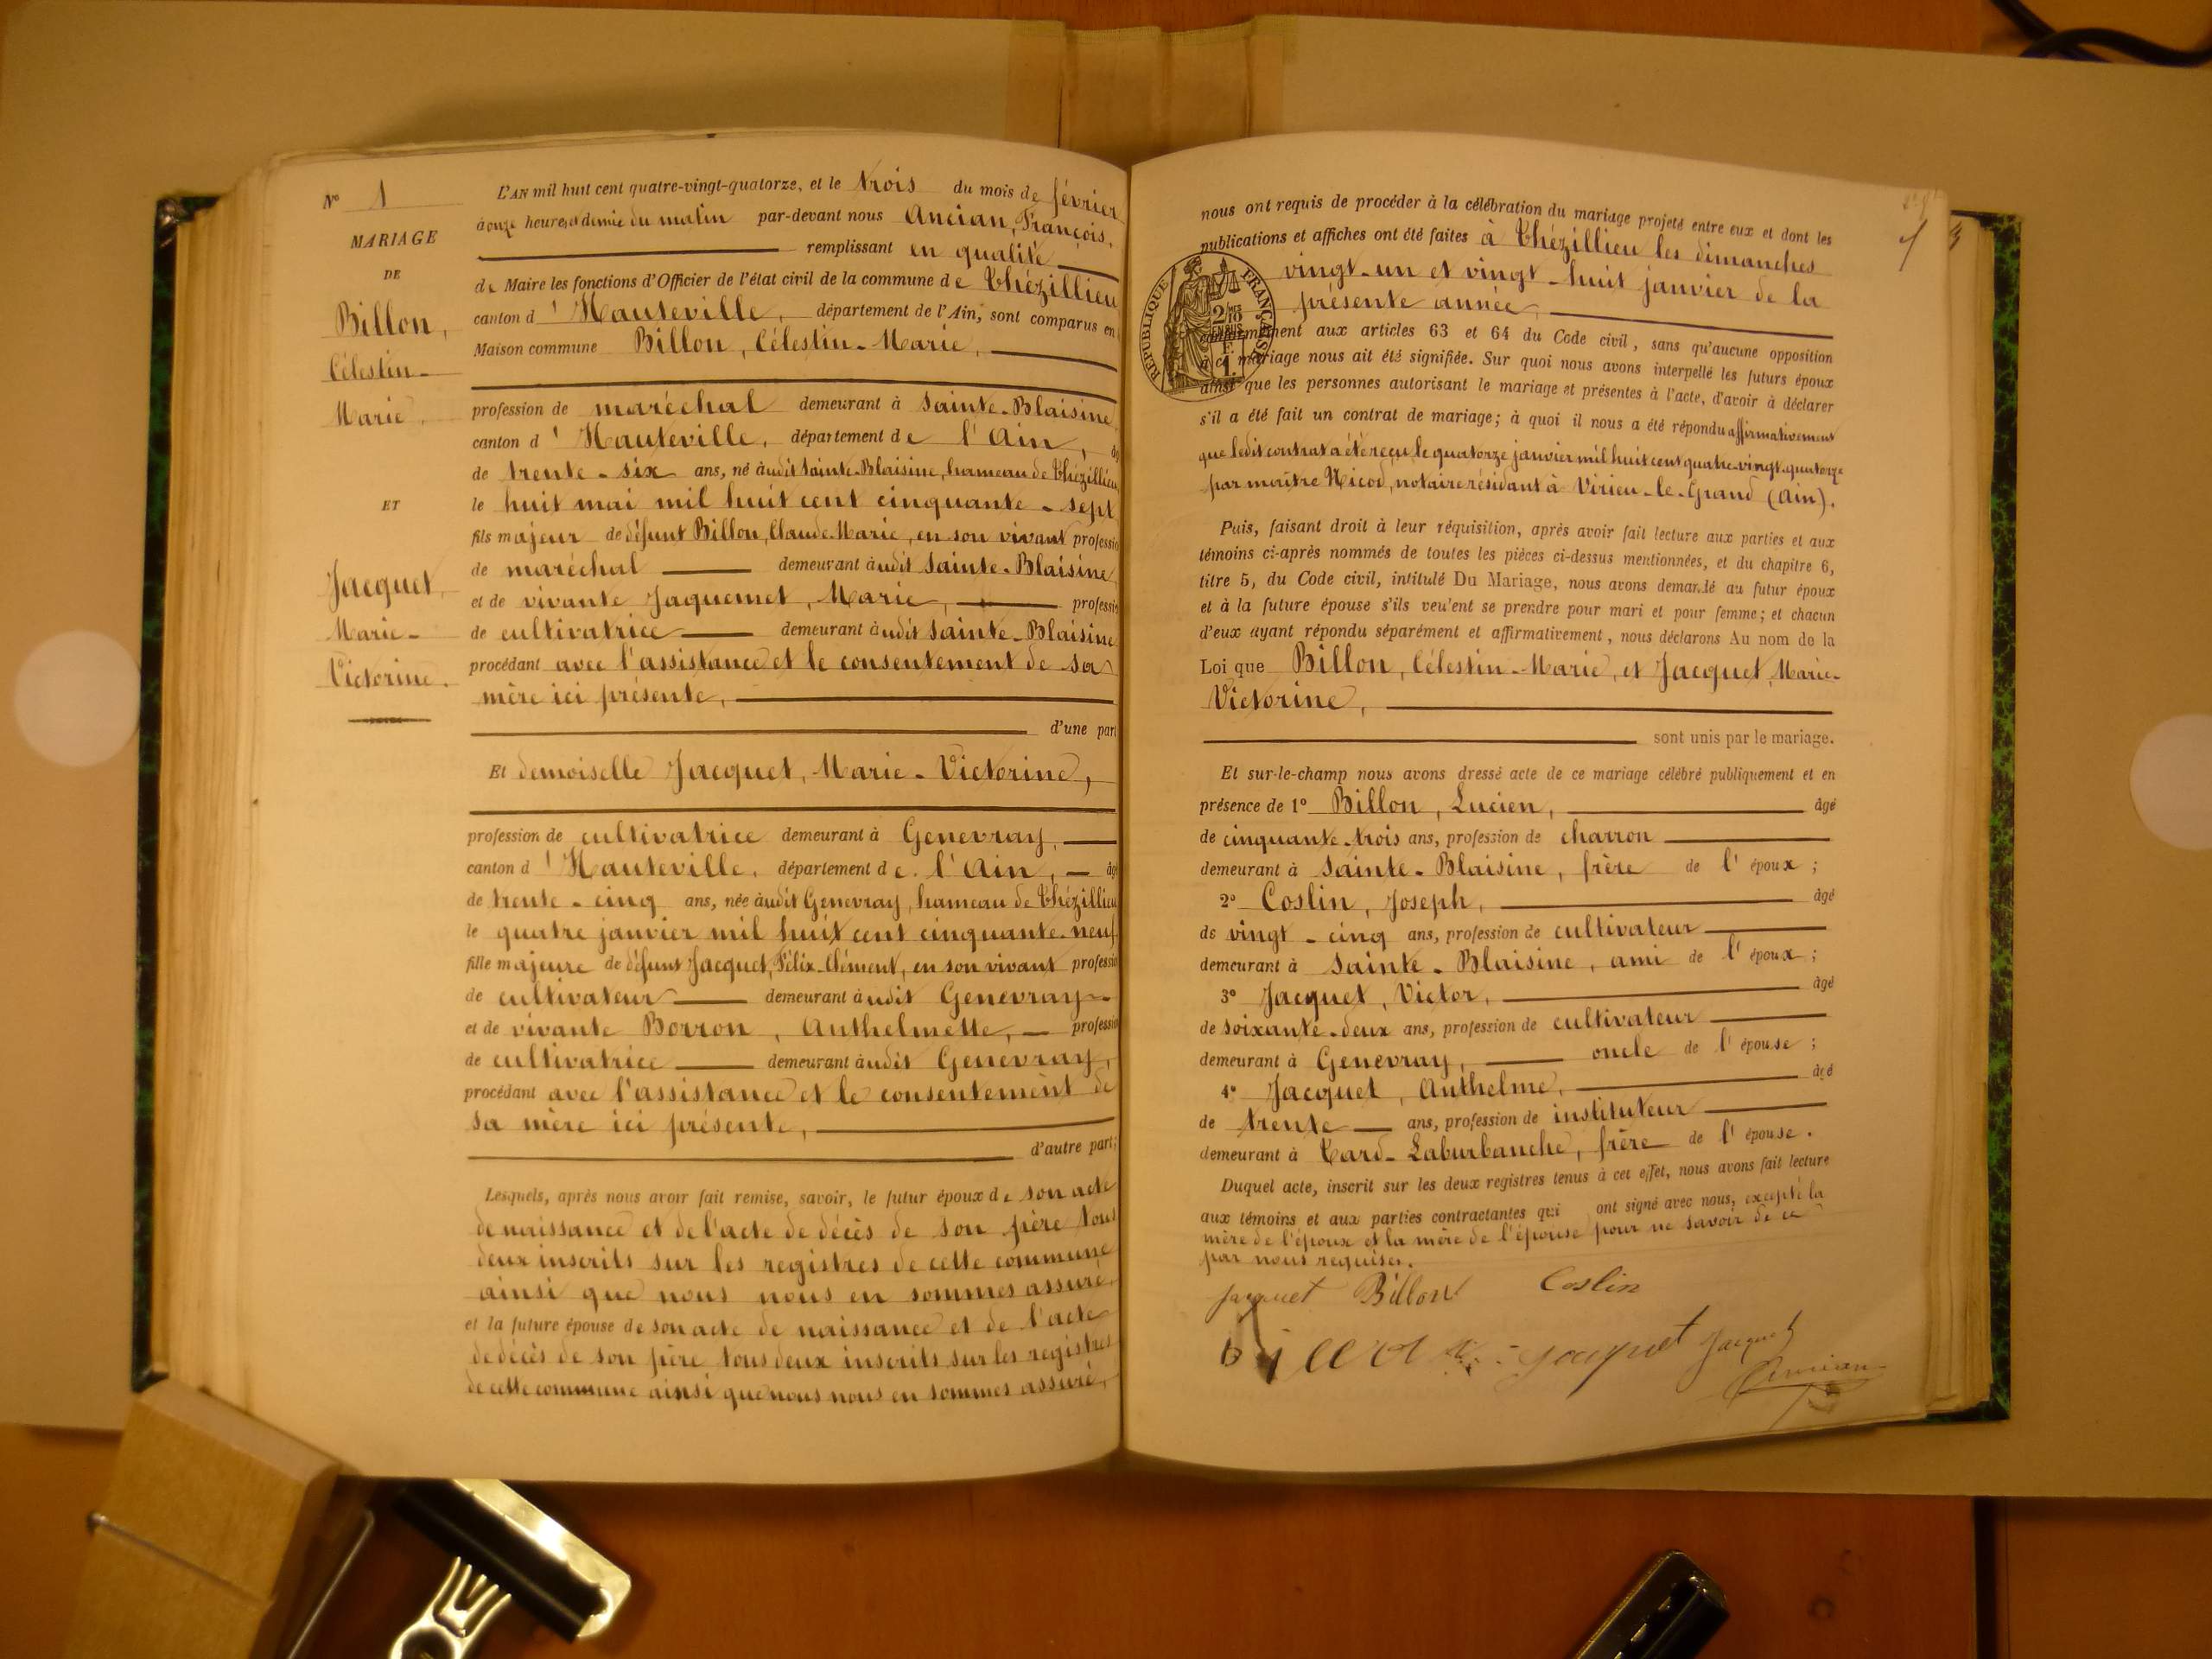 N° 1
MARIAGE
DE
Billon,
Célestin-
Marie,
ET
Jacquet,
Marie-
Victorine.
L'AN mil huit cent quatre-vingt-quatorze, et le trois du mois de février
à onze heures et demie du matin par-devant nous Ancian, François,
remplissant en qualité
de Maire les fonctions d'Officier de l'état civil de la commune de Thézillieu
canton d'Hauteville, département de l'Ain, sont comparus en
Maison commune Billon, Célestin-Marie,
profession de maréchal demeurant à Sainte-Blaisine
canton d'Hauteville, département de l'Ain,
de trente-six ans, né àudit Sainte-Blaisine, hameau de Thézillieu
le huit mai mil huit cent cinquante-sept
fils majeur de défunt Billon, Claude-Marie, en son vivant professio
de maréchal demeurant àudit Sainte-Blaisine
et de vivante Jaquemet, Marie, professi
de cultivatrice demeurant àudit Sainte-Blaisine
procédant avec l'assistance et le consentement de sa
mère ici présente,
d'une part
Et demoiselle Jacquet, Marie-Victorine,
profession de cultivatrice demeurant à Genevray,
canton d'Hauteville, département de l'Ain, âg
de trente-cinq ans, née àudit Genevray, hameau de Thézillieu
le quatre janvier mil huit cent cinquante-neuf
fille majeure de défunt Jacquet, Félix-Clément, en son vivant professi
de cultivateur demeurant àudit Genevray
et de vivante Borron, Anthelmette, professi
de cultivatrice demeurant àudit Genevray,
procédant avec l'assistance et le consentement de
sa mère ici présente,
d'autre part;
Lesquels, après nous avoir fait remise, savoir, le futur époux de son acte
de naissance et de l'acte de décès de son père tous
deux inscrits sur les registres de cette commune
ainsi que nous nous en sommes assuré,
et la future épouse de son acte de naissance et de l'acte
de décès de son père tous deux inscrits sur les registres
de cette commune ainsi que nous nous en sommes assuré,
nous ont requis de procéder à la célébration du mariage projeté entre eux et dont les
publications et affiches ont été faites à Thézillieu les dimanches
vingt-un et vingt-huit janvier de la
présente année
RÉPUBLIQUE FRANÇAISE
conformément aux articles 63 et 64 du Code civil, sans qu'aucune opposition
à ce mariage nous ait été signifiée. Sur quoi nous avons interpellé les futurs époux
ainsi que les personnes autorisant le mariage et présentes à l'acte, d'avoir à déclarer
s'il a été fait un contrat de mariage; à quoi il nous a été répondu affirmativement
que ledit contrat a été reçu le quatorze janvier mil huit cent quatre-vingt-quatorze
par maître Nicod, notaire résidant à Virieu-le-Grand (Ain).
Puis, faisant droit à leur réquisition, après avoir fait lecture aux parties et aux
témoins ci-après nommés de toutes les pièces ci-dessus mentionnées, et du chapitre 6,
titre 5, du Code civil, intitulé Du Mariage, nous avons demandé au futur époux
et à la future épouse s'ils veulent se prendre pour mari et pour femme; et chacun
d'eux ayant répondu séparément et affirmativement, nous déclarons Au nom de la
Loi que Billon, Célestin-Marie, et Jacquet, Marie-
Victorine,
sont unis par le mariage.
Et sur-le-champ nous avons dressé acte de ce mariage célébré publiquement et en
présence de 1° Billon, Lucien, âgé
de cinquante-trois ans, profession de charron
demeurant à Sainte-Blaisine, frère de l'époux;
2° Coslin, Joseph, âgé
de vingt-cinq ans, profession de cultivateur
demeurant à Sainte-Blaisine, ami de l'époux;
3° Jacquet, Victor, âgé
de soixante-deux ans, profession de cultivateur
demeurant à Genevray, oncle de l'épouse;
4° Jacquet, Anthelme, âgé
de trente ans, profession de instituteur
demeurant à Tard-Laburbanche, frère de l'épouse.
Duquel acte, inscrit sur les deux registres tenus à cet effet, nous avons fait lecture
aux témoins et aux parties contractantes qui ont signé avec nous, excepté la
mère de l'époux et la mère de l'épouse pour ne savoir de ce
par nous requises.
Jacquet Billon Coslin
Jacquet Jacquet
Ancian